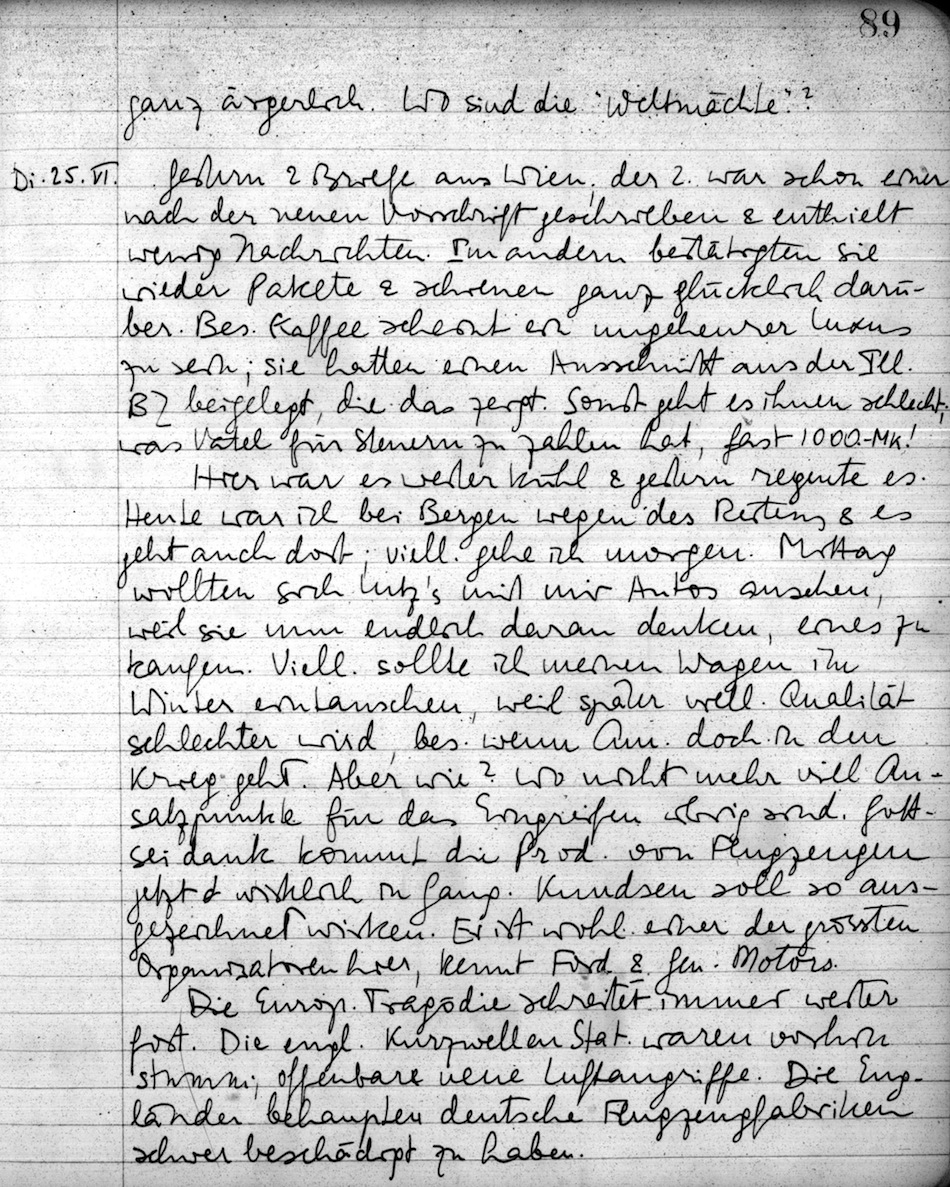 89
ganz ärgerlich. Wo sind die "Weltmächte"?
Di. 25. VI. Gestern 2 Briefe aus Wien, der 2. war schon einer
nach der neuen Vorschrift geschrieben & enthielt
wenig Nachrichten. Im andern bestätigten sie
wieder Pakete & schienen ganz glücklich darü-
ber. Bes. Kaffee scheint ein ungeheurer Luxus
zu sein; sie hatten einen Ausschnitt aus der Ill.
BZ beigelegt, die das zeigt. Sonst geht es ihnen schlecht,
was Vatel für Steuern zu zahlen hat, fast 1000.-Mk!
Hier war es weiter kühl & gestern regnete es.
Heute war ich bei Bergen wegen des Reitens & es
geht auch dort; viell. gehe ich morgen. Mittag
wollten sich Lutz's mit mir Autos ansehen,
weil sie nun endlich daran denken, eines zu
kaufen. Viell. sollte ich meinen Wagen im
Winter eintauschen, weil später viell. Qualität
schlechter wird, bes. wenn Am. doch in den
Krieg geht. Aber wie? Wo nicht mehr viell An-
satzpunkte für das Eingreifen übrig sind. Gott-
sei dank kommt die Prod. von Flugzeugen
jetzt wirklich in Gang. Knudsen soll so aus-
gezeichnet wirken. Er ist wohl einer der grössten
Organisatoren hier, kennt Ford & Gen. Motors.
Die Europ. Tragödie schreitet immer weiter
fort. Die engl. Kurzwellen Stat. waren vorhin
stumm, offenbare neue Luftangriffe. Die Eng-
länder behaupten deutsche Flugzeugfabriken
schwer beschädigt zu haben.